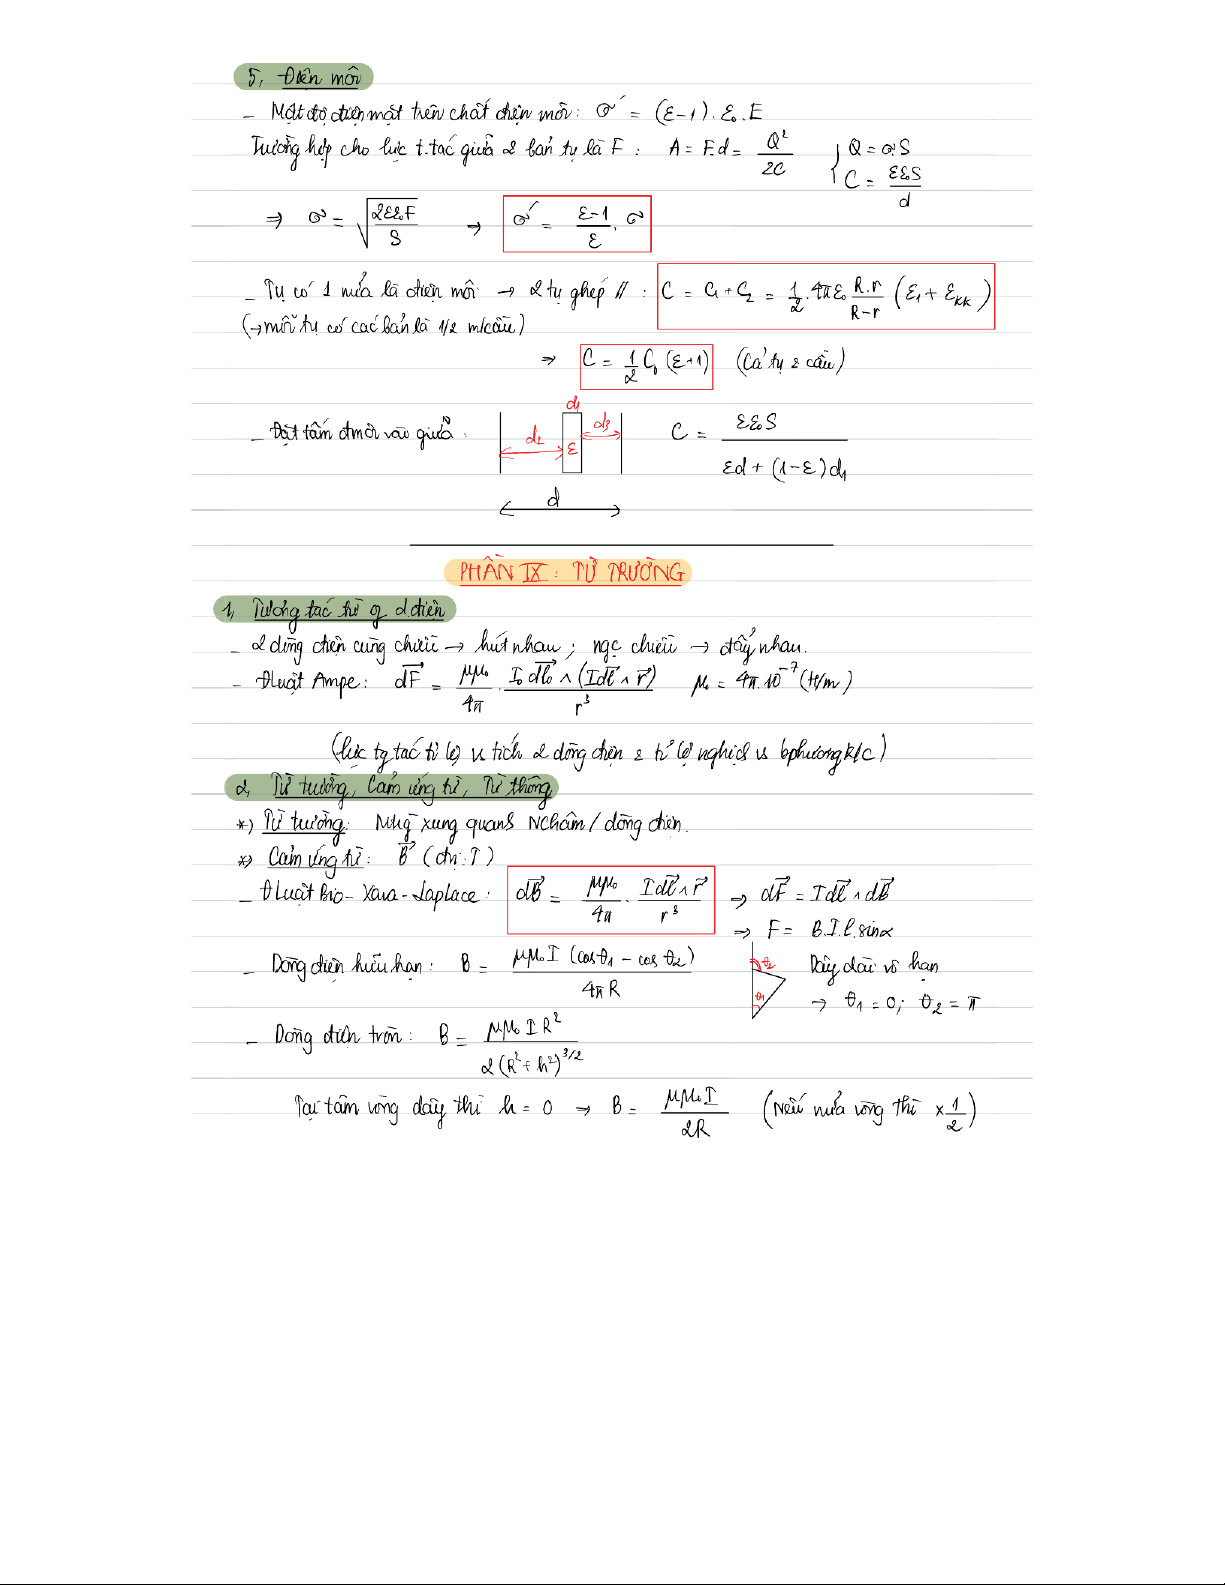 5, Điện môi
- Mật độ điện mặt trên chất điện môi: σ' = (ε-1).ε₀.E
Trường hợp cho lực t.tác giữa 2 bản tụ là F: A = F.d = Q²/2C { Q = σ.S ; C = εε₀S/d
⇒ σ = √(2εε₀F/S) → σ' = (ε-1)/ε . σ
- Tụ có 1 nửa là điện môi → 2 tụ ghép //: C = C₁ + C₂ = 1/2 . 4πε₀ R.r/(R-r) (ε₁ + ε_KK)
(→ mỗi tụ có các bản là 1/2 m/cầu)
⇒ C = 1/2 C₀ (ε+1) (Cả tụ & cầu)
- Đặt tấm đmôi vào giữa: C = εε₀S / (εd + (1-ε)d₁)
d₁
d₂ ε d₃
d
PHẦN IX: TỪ TRƯỜNG
1, Tương tác từ of d.điện
- 2 dòng điện cùng chiều → hút nhau; ngc chiều → đẩy nhau.
- Đluật Ampe: dF⃗ = μμ₀/4π . I₀dl⃗₀ ∧ (Idl⃗ ∧ r⃗)/r³ μ₀ = 4π.10⁻⁷ (H/m)
(lực tg tác tỉ lệ vs tích 2 dòng điện & tỉ lệ nghịch vs bphương k/c)
2, Từ trường, Cảm ứng từ, Từ thông
*) Từ trường: xung quanh NChâm/dòng điện.
*) Cảm ứng từ: B⃗ (đvị: T)
- Đluật Bio-Xava-Laplace: dB⃗ = μμ₀/4π . Idl⃗ ∧ r⃗/r³ ⇒ dF⃗ = Idl⃗ ∧ dB⃗
⇒ F = B.I.l.sinα
- Dòng điện hữu hạn: B = μμ₀I (cosθ₁ - cosθ₂)/4πR θ₂ θ₁ Dây dài vô hạn
→ θ₁ = 0; θ₂ = π
- Dòng điện tròn: B = μμ₀IR²/2(R²+h²)^3/2
Tại tâm vòng dây thì h = 0 ⇒ B = μμ₀I/2R (Nếu nửa vòng thì × 1/2)